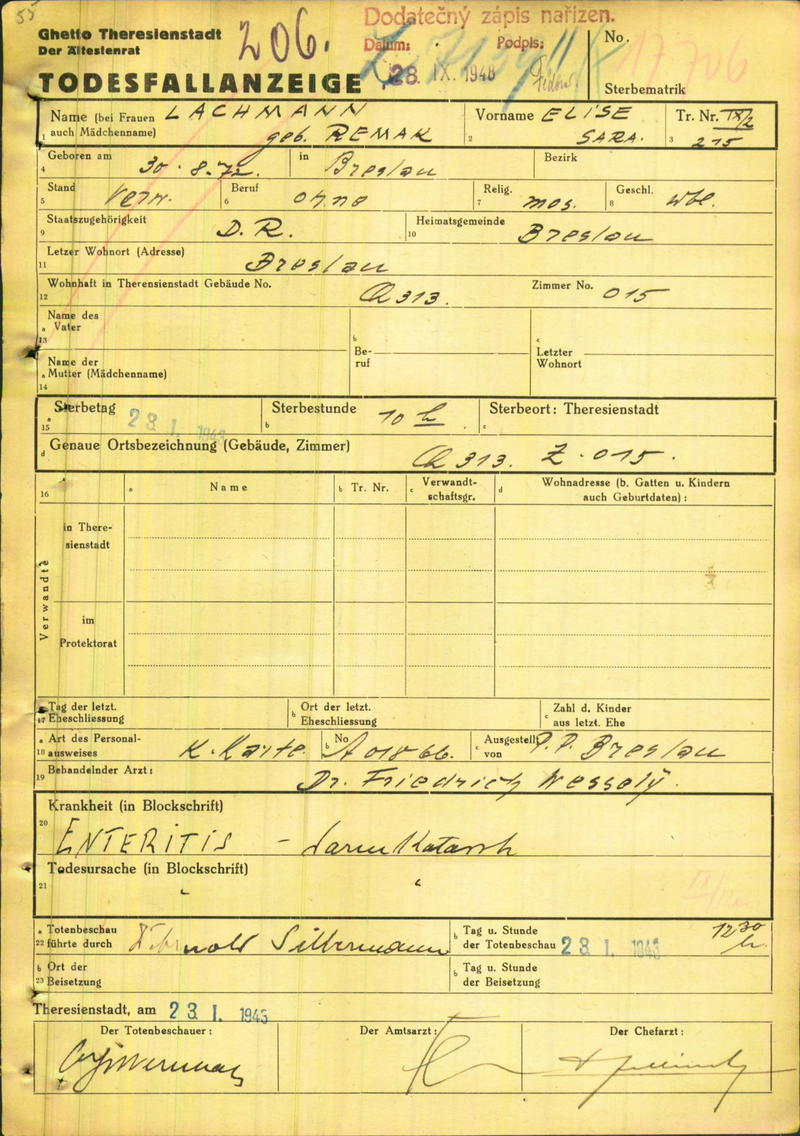 55
Ghetto Theresienstadt
Der Ältestenrat
206.
TODESFALLANZEIGE
Dodatečný zápis nařízen.
Datum: Podpis:
28 IX. 1948
No.
17706
Sterbematrik
Name (bei Frauen auch Mädchenname) LACHMANN
geb. REMAK
1
Vorname ELISE
SARA.
2
Tr. Nr. IX/2
3 215
Geboren am 30. 8. 72. in Breslau Bezirk
4
Stand Verw. Beruf ohne Relig. mos. Geschl. wbl.
5 6 7 8
Staatszugehörigkeit D. R. Heimatsgemeinde Breslau
9 10
Letzer Wohnort (Adresse) Breslau
11
Wohnhaft in Theresienstadt Gebäude No. Q 313. Zimmer No. 015
12
Name des
a Vater
13
b
Beruf
c
Letzter
Wohnort
Name der
a Mutter (Mädchenname)
14
Sterbetag 23 I. 1943 Sterbestunde 10 h Sterbeort: Theresienstadt
a 15 b c
d Genaue Ortsbezeichnung (Gebäude, Zimmer) Q 313. Z. 015.
16 a Name b Tr. Nr. c Verwandtschaftsgr. d Wohnadresse (b. Gatten u. Kindern
auch Geburtdaten):
Verwandte
in Theresienstadt
im
Protektorat
a Tag der letzt.
17 Eheschliessung
b Ort der letzt.
Eheschliessung
c Zahl d. Kinder
aus letzt. Ehe
a Art des Personal-
18 ausweises K. Karte. b No A 01866. c Ausgestellt von P. P. Breslau
19 Behandelnder Arzt: Dr. Friedrich Wessely.
Krankheit (in Blockschrift)
20
ENTERITIS – Darmkatarrh
Todesursache (in Blockschrift)
21
a Totenbeschau
22 führte durch Silbermann
b Tag u. Stunde
der Totenbeschau 23 I. 1943 12 30 h.
b Ort der
23 Beisetzung
b Tag u. Stunde
der Beisetzung
Theresienstadt, am 23 I. 1943
Der Totenbeschauer: Der Amtsarzt: Der Chefarzt: